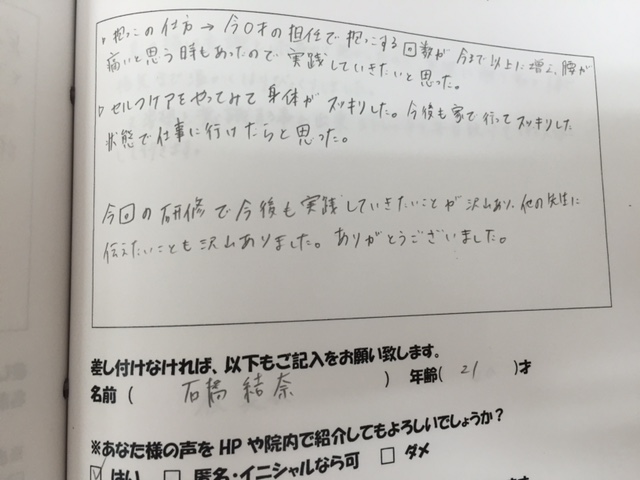 ・抱っこの仕方→今0才の担任で抱っこする回数が今まで以上に増え、腰が
痛いと思う時もあったので実践していきたいと思った。
・セルフケアをやってみて身体がスッキリした。今後も家で行ってスッキリした
状態で仕事に行けたらと思った。
今回の研修で今後も実践していきたいことが沢山あり、他の先生に
伝えたいことも沢山ありました。ありがとうございました。
差し付けなければ、以下もご記入をお願い致します。
名前 ( 石橋 結奈 ) 年齢( 21 )才
※あなた様の声を HP や院内で紹介してもよろしいでしょうか?
☑ はい □ 匿名・イニシャルなら可 □ ダメ